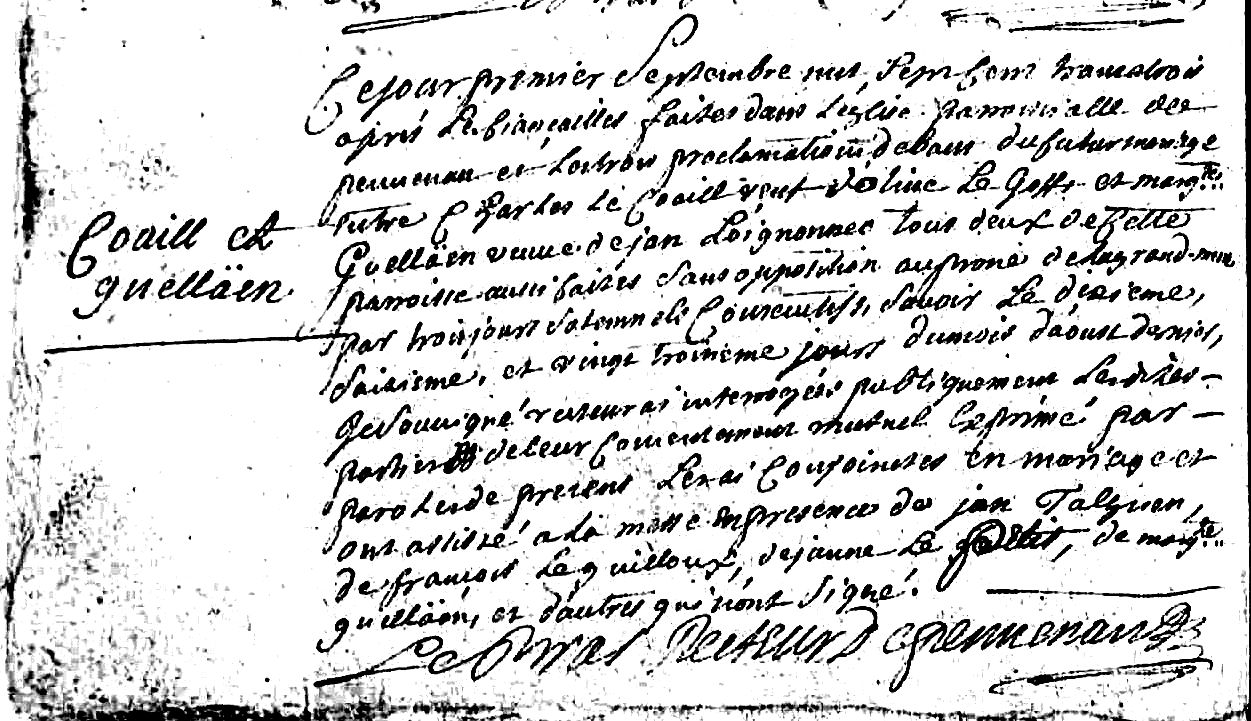 Covill et
guelläen
Ce jour premier Septembre mil sept cent trante trois
aprés les fiançailles faites dans l'église parroissialle de
penvenan et les trois proclamations de bans du futur mariage
entre Charles Le Covill veuf d'olive Le Goff et marg.te
Guelläen veuve de jan Loignonnec tous deux de cette
parroisse aussi faites sans opposition au prone de la grand-messe
par trois jours solemnels Consecutifs, savoir Le dixieme,
saisieme, et vingt troisieme jours du mois d'aoust dernier,
Je soussigné recteur ai interrogées publiquement Lesdites
parties de leur Consentement mutuel Exprimé par
paroles de present Les ai Conjoinctes en mariage et
ont assisté a la messe en presence de jan Talguen,
de françois Le guilloux, de janne Le, de marg.te
guelläen, et d'autres qui n'ont signé.
Recteur De penvenan